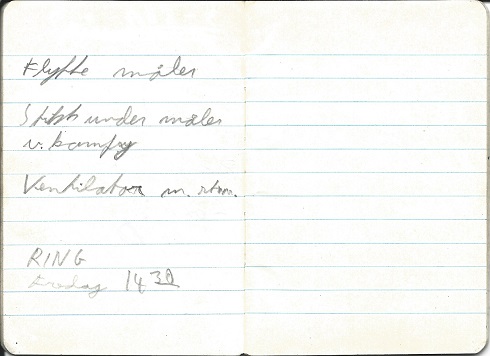 Flytte måler
Stikk under måler
v. komfyr
Ventilator m. strøm.
RING
Fredag 14 30